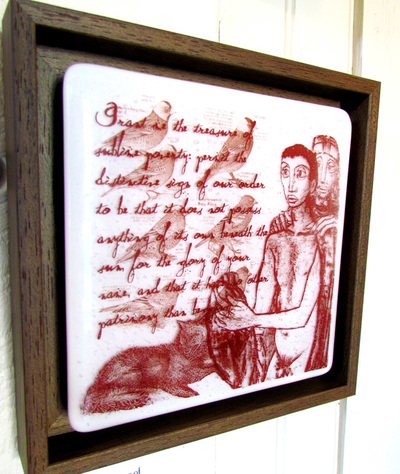 Grant us the treasure of
sublime poverty: permit the
distinctive sign of our order
to be that it does not possess
anything of its own beneath the
sun, for the glory of your
name, and that it have no other
patrimony than be